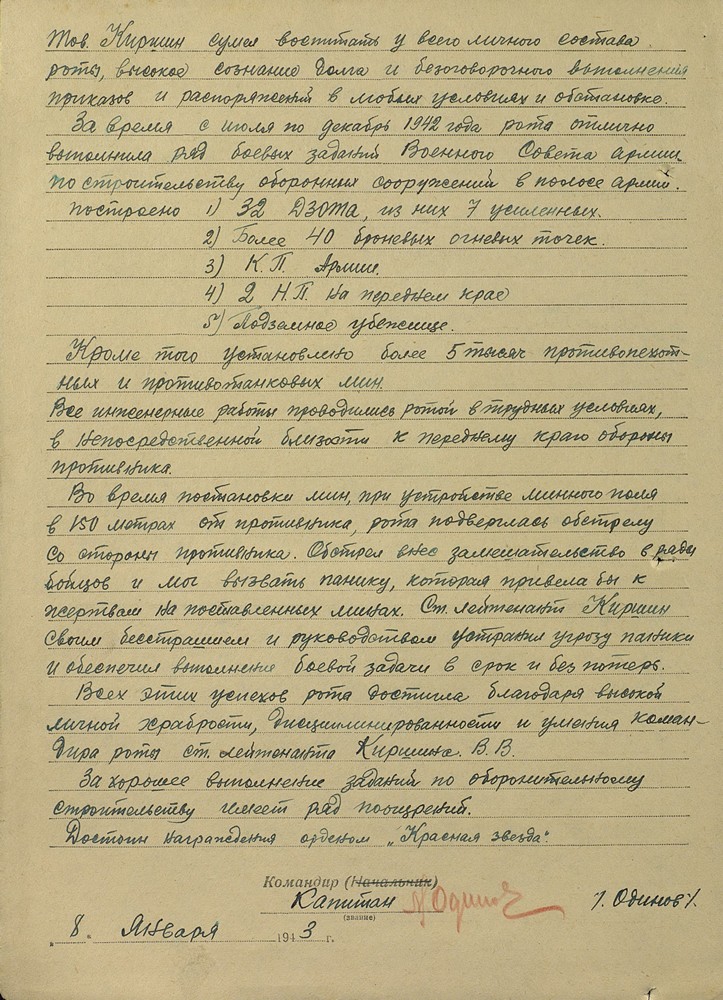 Тов. Киршин сумел воспитать у всего личного состава
роты, высокое сознание долга и безоговорочного выполнения
приказов и распоряжений в любых условиях и обстановке.
За время с июля по декабрь 1942 года рота отлично
выполнила ряд боевых заданий Военного Совета армии
по строительству оборонных сооружений в полосе армии.
построено 1) 32 ДЗОТа, из них 7 усиленных.
2) Более 40 броневых огневых точек.
3) К.П. Армии.
4) 2 Н.П. на переднем крае
5) Подземное убежище.
Кроме того установлено более 5 тысяч противопехот-
ных и противотанковых мин.
Все инженерные работы проводились ротой в трудных условиях,
в непосредственной близости к переднему краю обороны
противника.
Во время постановки мин, при устройстве минного поля
в 150 метрах от противника, рота подверглась обстрелу
со стороны противника. Обстрел внес замешательство в ряды
бойцов и мог вызвать панику, которая привела бы к
жертвам на поставленных минах. Ст. лейтенант Киршин
своим бесстрашием и руководством устранил угрозу паники
и обеспечил выполнение боевой задачи в срок и без потерь.
Всех этих успехов рота достигла благодаря высокой
личной храбрости, дисциплинированности и умения коман-
дира роты ст. лейтенанта Киршина. В.В.
За хорошее выполнение заданий по оборонительному
строительству имеет ряд поощрений.
Достоин награждения орденом „Красная звезда".
Командир (Начальник)
Капитан Одинов /. Одинов/.
(звание)
„8" Января 1943 г.